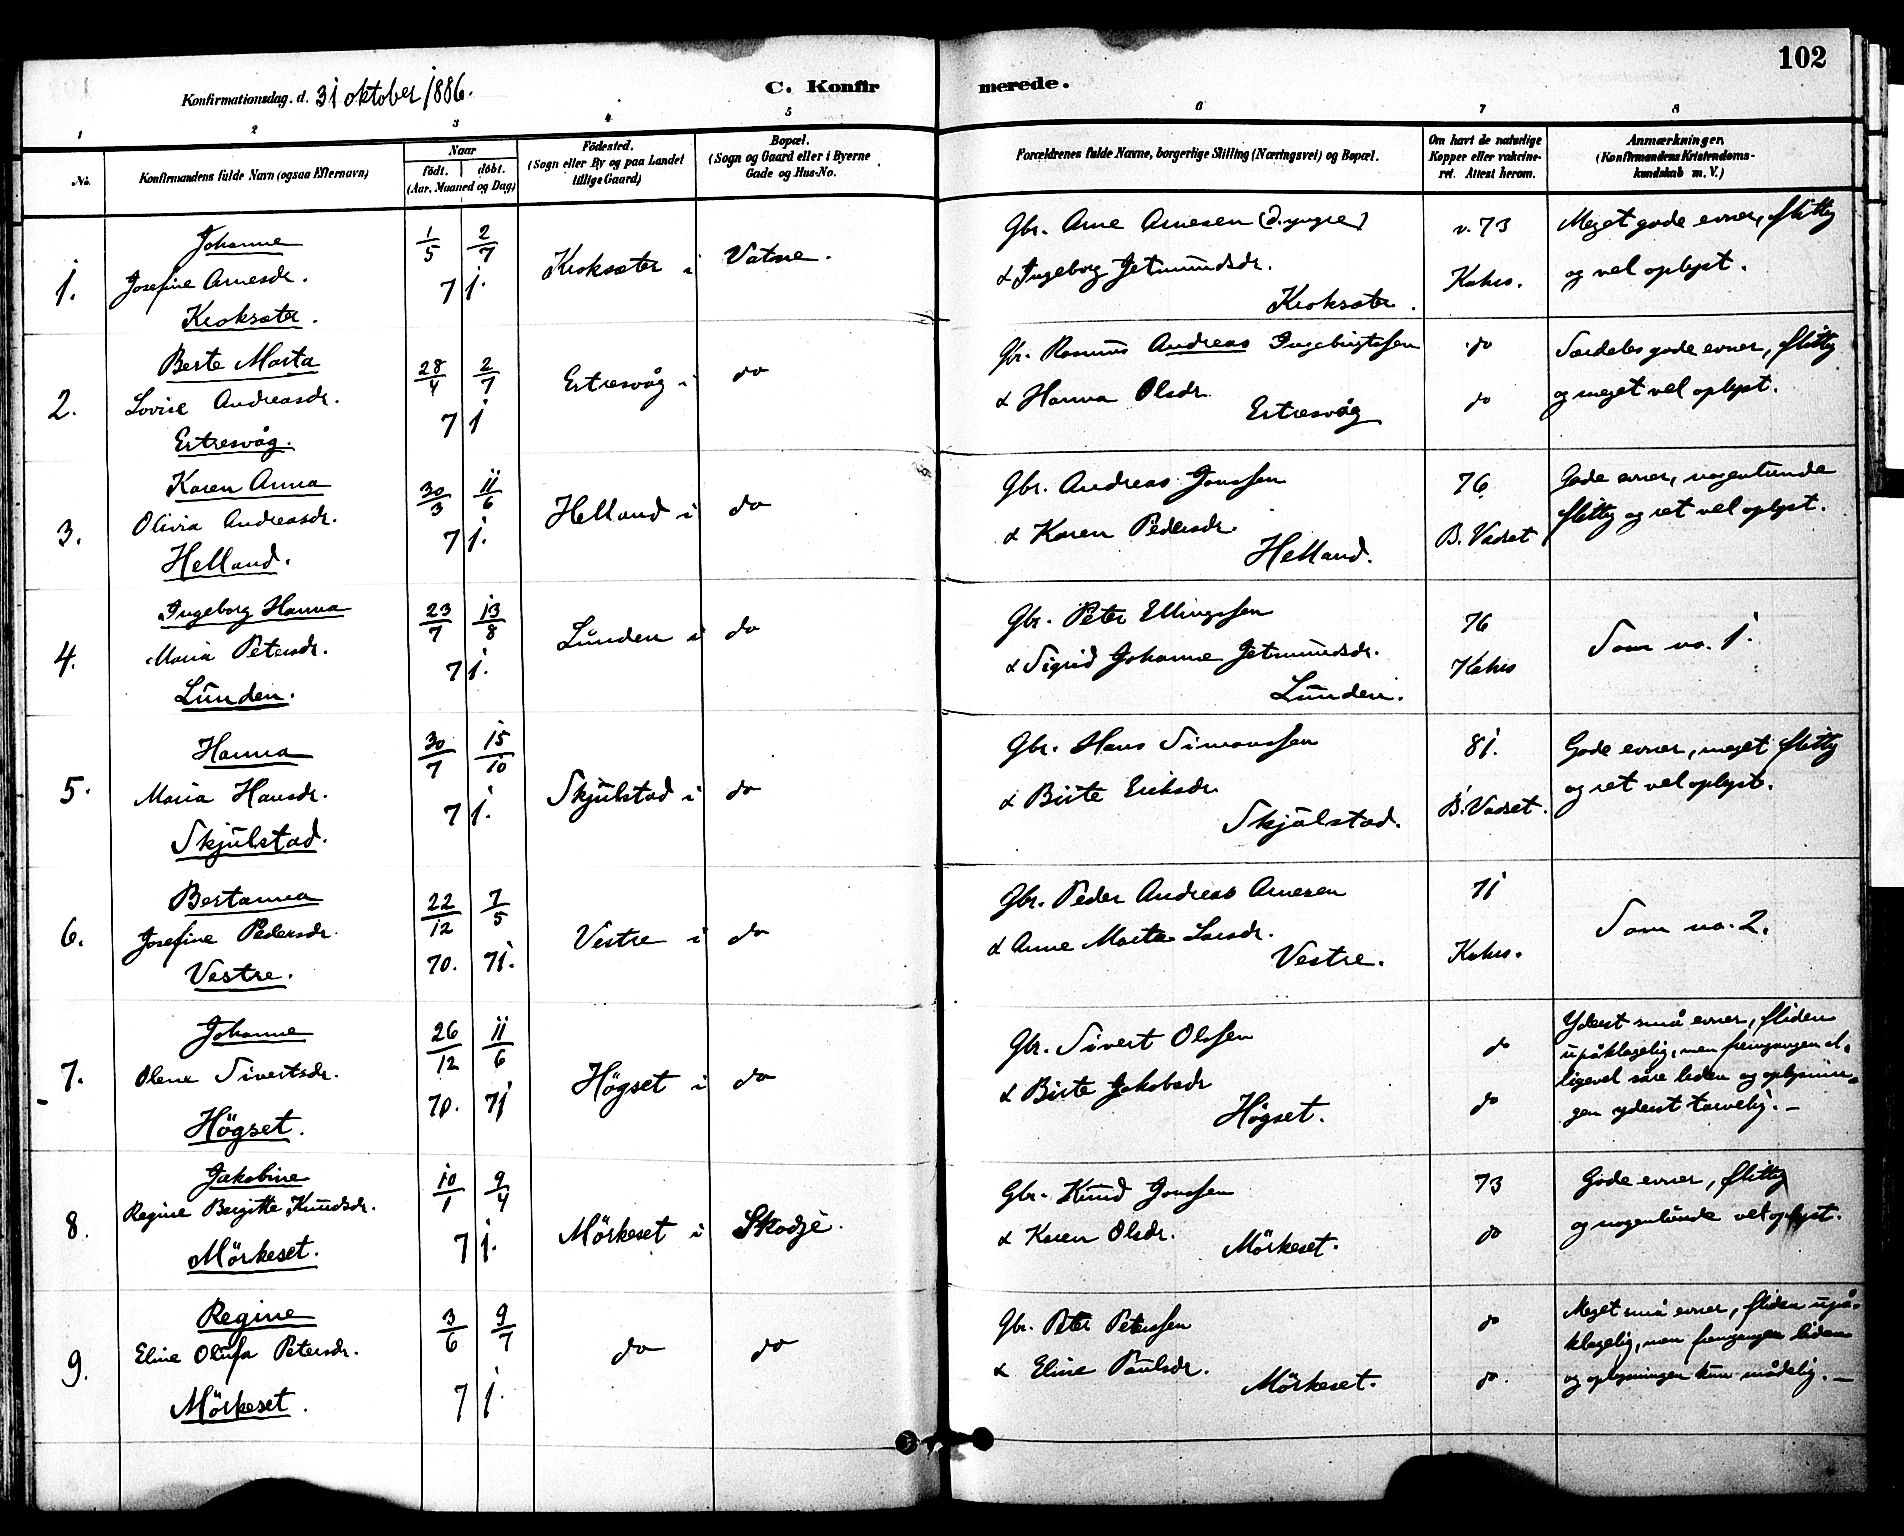 102
Konfirmationsdag. d. 31 oktober 1886.
C. Konfirmerede.
1 2 3 4 5 6 7 8
No.
Konfirmandens fulde Navn (ogsaa Efternavn)
Naar
födt. döbt.
(Aar, Maaned og Dag)
Födested.
(Sogn eller By og paa Landet
tillige Gaard)
Bopæl.
(Sogn og Gaard eller i Byerne
Gade og Hus-No.
Forældrenes fulde Navne, borgerlige Stilling (Næringsvei) og Bopæl.
Om havt de naturlige
Kopper eller vakcine-
ret. Attest herom.
Anmærkninger.
(Konfirmandens Kristendoms-
kundskab m. V.)
1.
Johanne
Josefine Arnesdr.
Kroksæter.
1/5 2/7
71.
Kroksæter i
Vatne.
Gbr. Arne Arnesen (d. yngre)
& Ingeborg Jetmundsdr.
Kroksæter.
v. 73
Kahrs.
Meget gode evner, flittig
og vel oplyst.
2.
Berte Marta
Lovise Andreasdr.
Ertresvåg.
28/4 2/7
71
Ertresvåg i
do
Gbr. Rasmus Andreas Ingebrigtssen
& Hanna Olsdr.
Ertresvåg
do
do
Særdeles gode evner, flittig
og meget vel oplyst.
3.
Karen Anna
Olivia Andreasdr.
Helland.
30/3 11/6
71.
Helland i
do
Gbr. Andreas Jonssen
& Karen Pedersdr.
Helland.
76
B. Vadset
Gode evner, nogenlunde
flittig og ret vel oplyst.
4.
Ingeborg Hanna
Maria Petersdr.
Lunden.
23/7 13/8
71.
Lunden i
do
Gbr. Peter Ellingssen
& Sigrid Johanne Jetmundsdr.
Lunden.
76
Kahrs
Som no. 1.
5.
Hanna
Maria Hansdr.
Skjulstad.
30/7 15/10
71.
Skjulstad i
do
Gbr. Hans Simonssen
& Birte Eriksdr.
Skjulstad.
81.
B. Vadset.
Gode evner, meget flittig
og ret vel oplyst.
6.
Bertanna
Josefine Pedersdr.
Vestre.
22/12 7/5
70. 71.
Vestre i
do
Gbr. Peder Andreas Arnesen
& Anne Marta Larsdr.
Vestre.
71
Kahrs.
Som no. 2.
7.
Johanne
Olene Sivertsdr.
Högset.
26/12 11/6
70. 71
Högset i
do
Gbr. Sivert Olssen
& Birte Jakobsdr
Högset.
do
do
Yderst små evner, fliden
upåklagelig, men fremgangen al-
ligevel såre liden og oplysnin-
gen yderst tarvelig. –
8.
Jakobine
Regine Bergitte Knudsdr.
Mörkeset.
10/1 9/4
71.
Mörkeset i
Skodje.
Gbr. Knud Jonssen
& Karen Olsdr.
Mörkeset.
73
do
Gode evner, flittig
og nogenlunde vel oplyst.
9.
Regine
Eline Olufa Petersdr.
Mörkeset.
3/6 9/7
71.
do
do
Gbr. Peter Peterssen
& Eline Paulsdr.
Mörkeset.
do
do.
Meget små evner, fliden upå-
klagelig, men fremgangen liden
og oplysningen kun mådelig. –